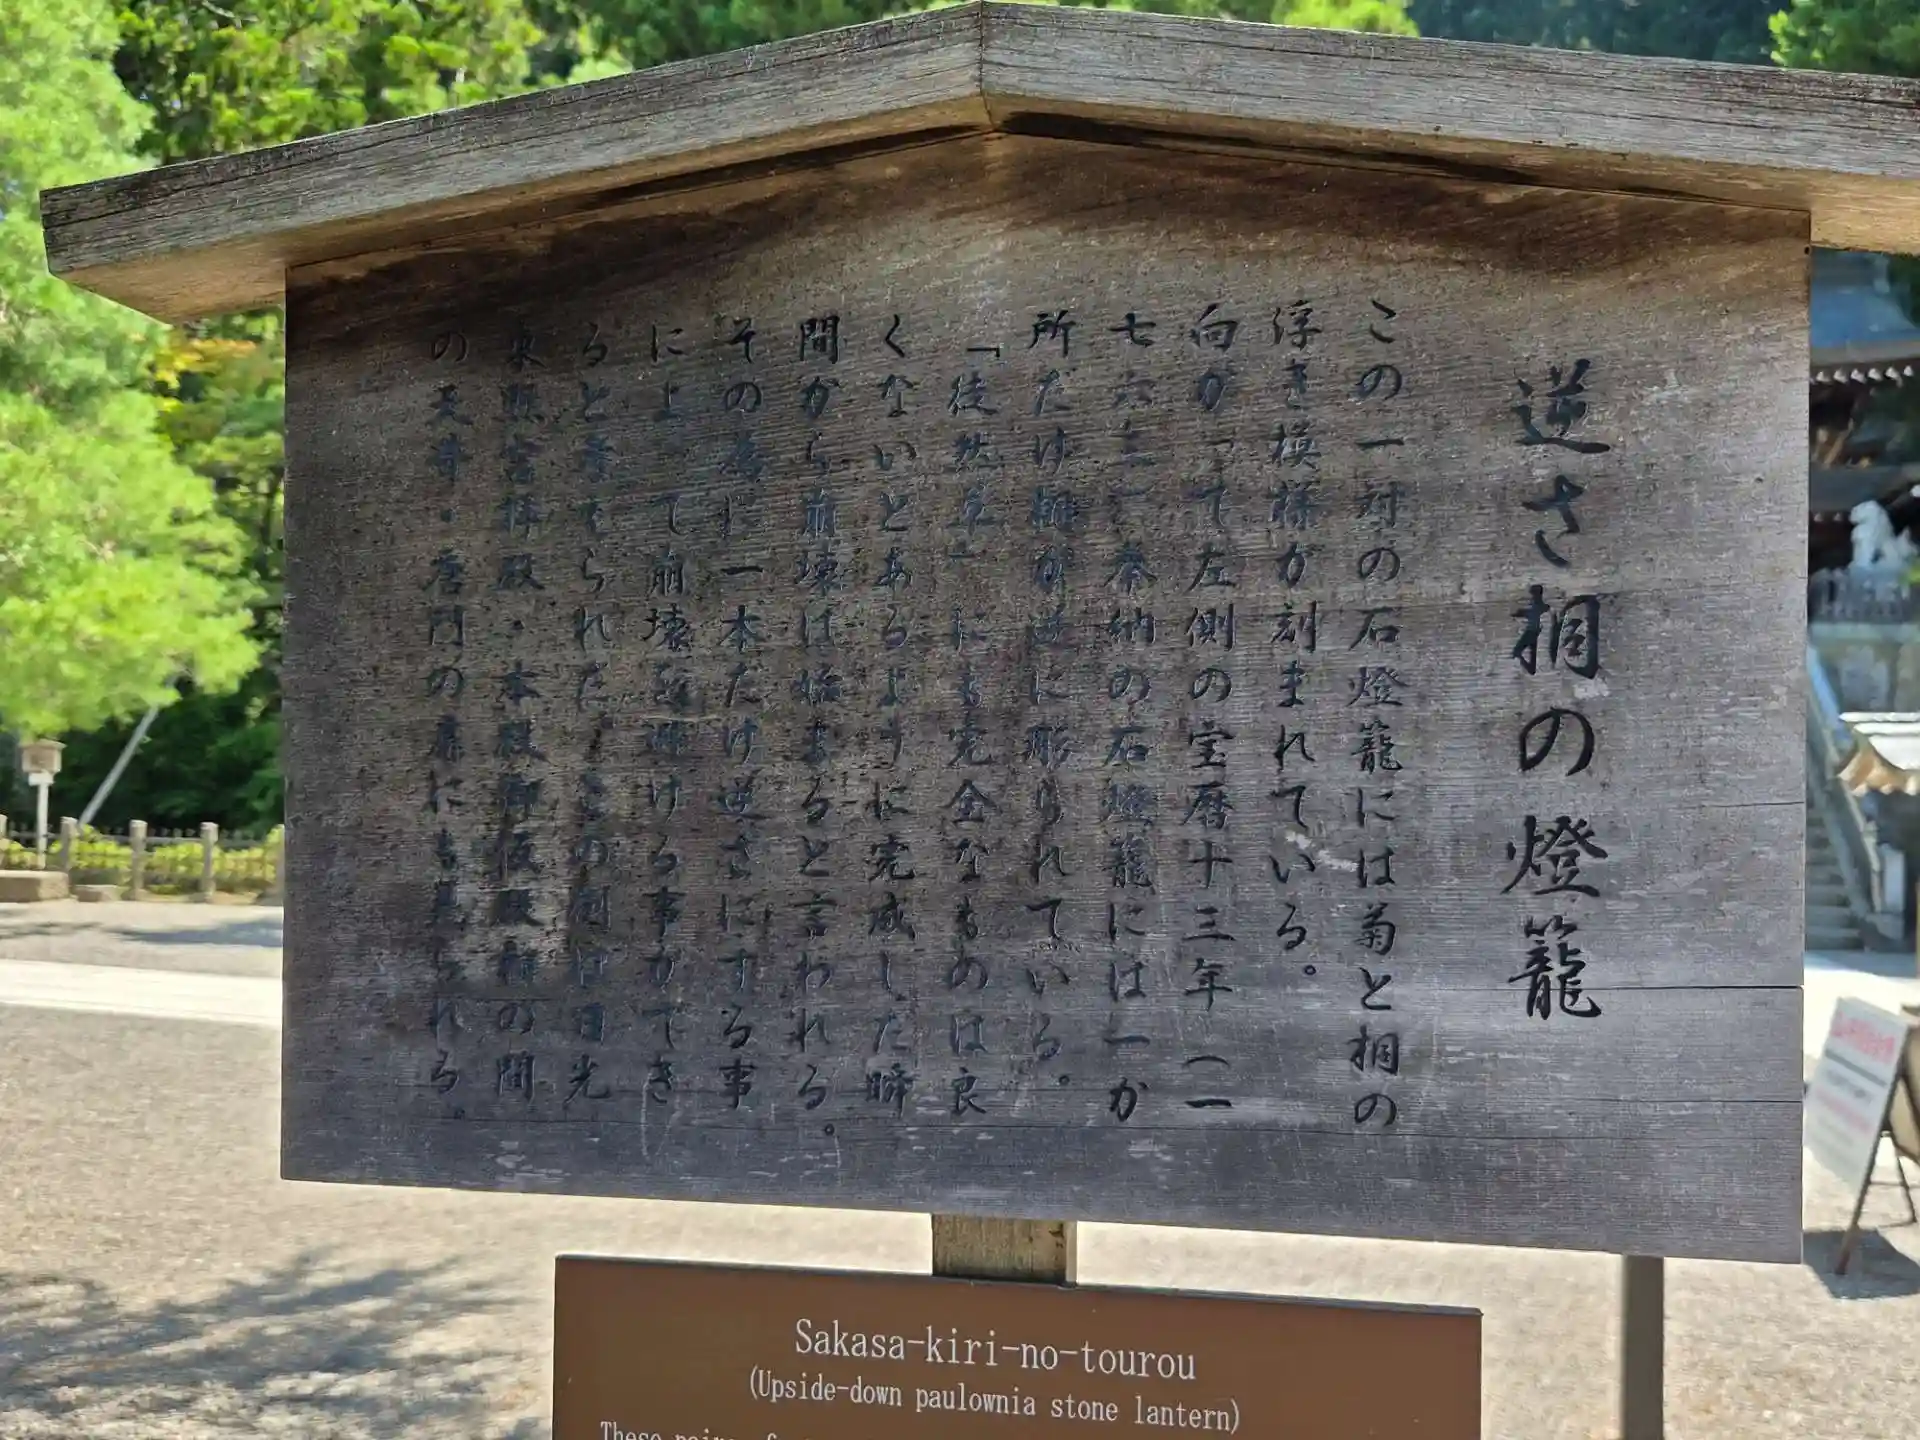 逆さ桐の燈籠
この一対の石燈籠には菊と桐の
浮き模様が刻まれている。
向かって左側の宝暦十三年(一
七六三)奉納の石燈籠には一か
所だけ桐が逆に彫られている。
「徒然草」にも完全なものは良
くないとあるように完成した瞬
間から崩壊は始まると言われる。
その為に一本だけ逆さにする事
によって崩壊を避ける事ができ
ると案じられた。この例は日光
東照宮拝殿・本殿御仮殿樹の間
の天井・唐門の扉にも見られる。
Sakasa-kiri-no-tourou
(Upside-down paulownia stone lantern)
These pairs of